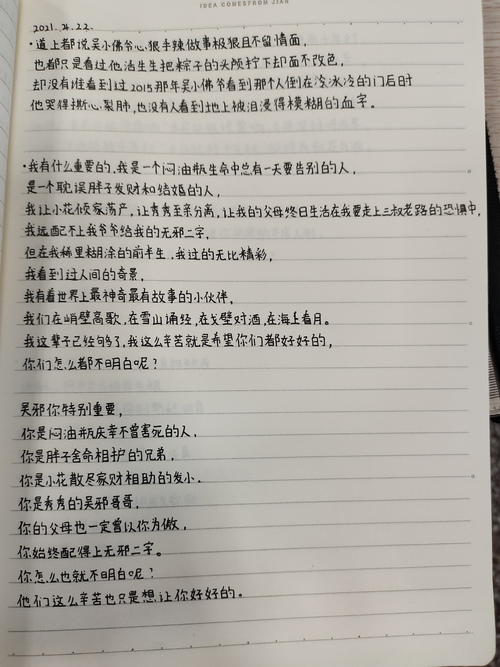 IDEA COMESFROM JIAN
2021.4.22.
·道上都说吴小佛爷心狠手辣做事极狠且不留情面，
也都只是看过他活生生把粽子的头颅拧下却面不改色，
却没有谁看到过2015那年吴小佛爷看到那个人倒在冷冰冷的门后时
他哭得撕心裂肺，也没有人看到地上被泪浸得模糊的血字。
·我有什么重要的，我是一个闷油瓶生命中总有一天要告别的人，
是一个耽误胖子发财和结婚的人，
我让小花倾家荡产，让秀秀至亲分离，让我的父母终日生活在我要走上三叔老路的恐惧中，
我远配不上我爷爷给我的无邪二字，
但在我稀里糊涂的前半生，我过的无比精彩，
我看到过人间的奇景，
我有着世界上最神奇最有故事的小伙伴，
我们在峭壁高歌，在雪山诵经，在戈壁对酒，在海上看月。
我这辈子已经够了，我这么辛苦就是希望你们都好好的，
你们怎么都不明白呢？
吴邪你特别重要，
你是闷油瓶庆幸不曾害死的人，
你是胖子舍命相护的兄弟，
你是小花散尽家财相助的发小。
你是秀秀的吴邪哥哥，
你的父母也一定曾以你为傲，
你始终配得上无邪二字。
你怎么也就不明白呢？
他们这么辛苦也只是想让你好好的。